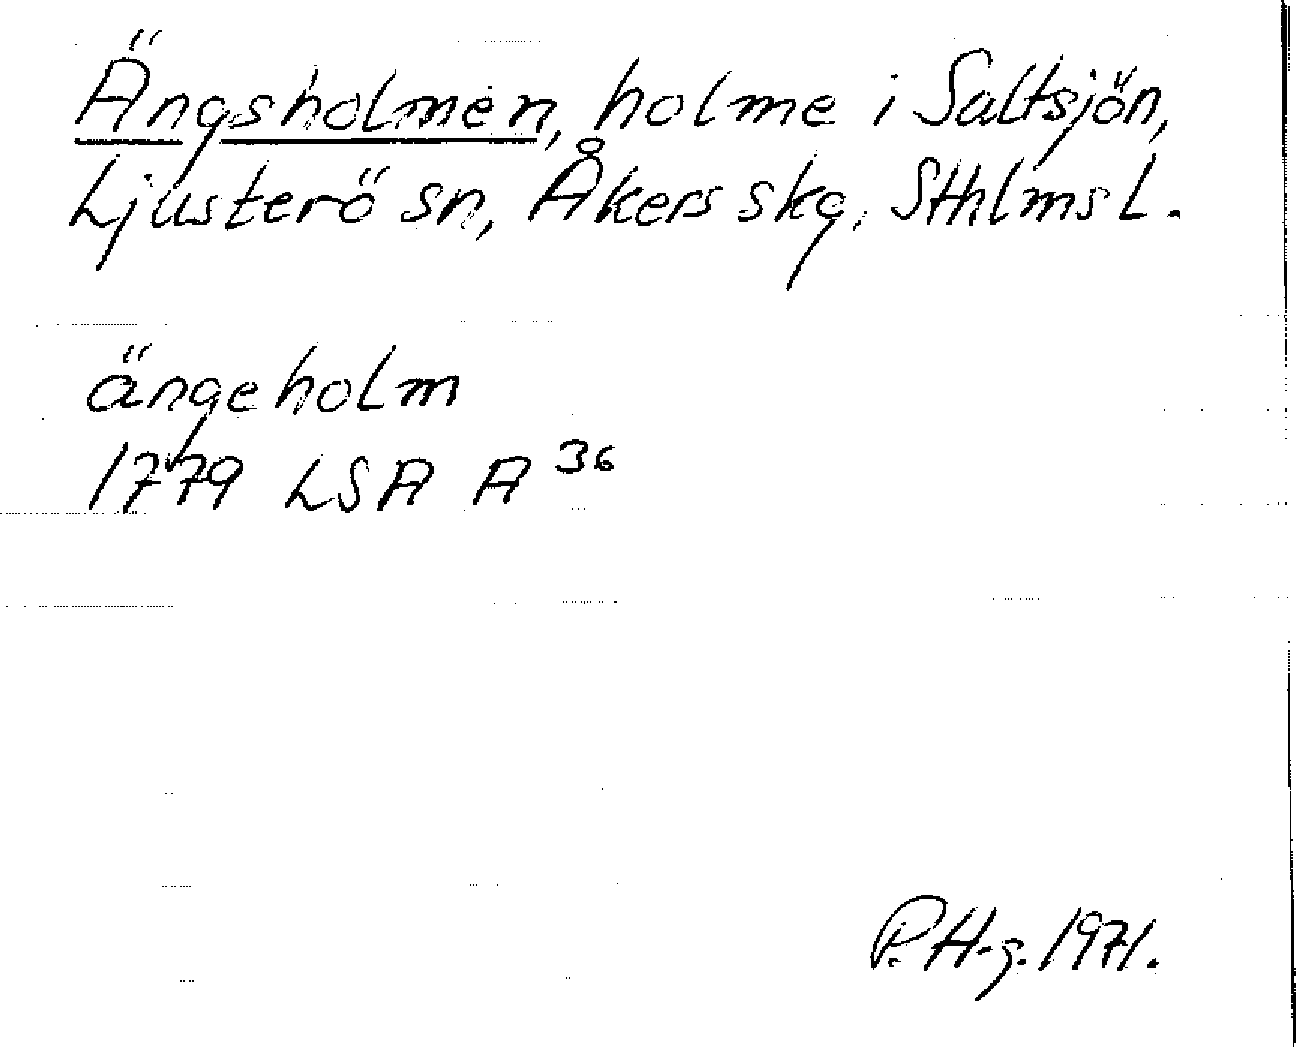 Ängsholmen, holme i Saltsjön,
Ljusterö sn, Åkers skg, Sthlms L.
ängeholm
1779 LSA A 36
P. H-g. 1971.